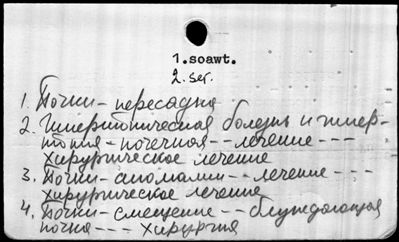 1.soawt.
2. ser.
1. Почки - пересадка
2. Гипертоническая болезнь и гипер-
тония - почечная -- лечение ---
хирургическое лечение
3. Почки - аномалии -- лечение ---
хирургическое лечение
4. Почки - смещение -- блуждающая
почка --- хирургия